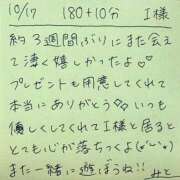 10/17 180+10分 I様
約3週間ぶりにまた会え
て凄く嬉しかったよ♡
プレゼントも用意してくれて
本当にありがとう いつも
優しくしてくれて I様と居ると
とても心が落ちつくよ(*ˊᵕˋ*)
また一緒に遊ぼうね!! みと